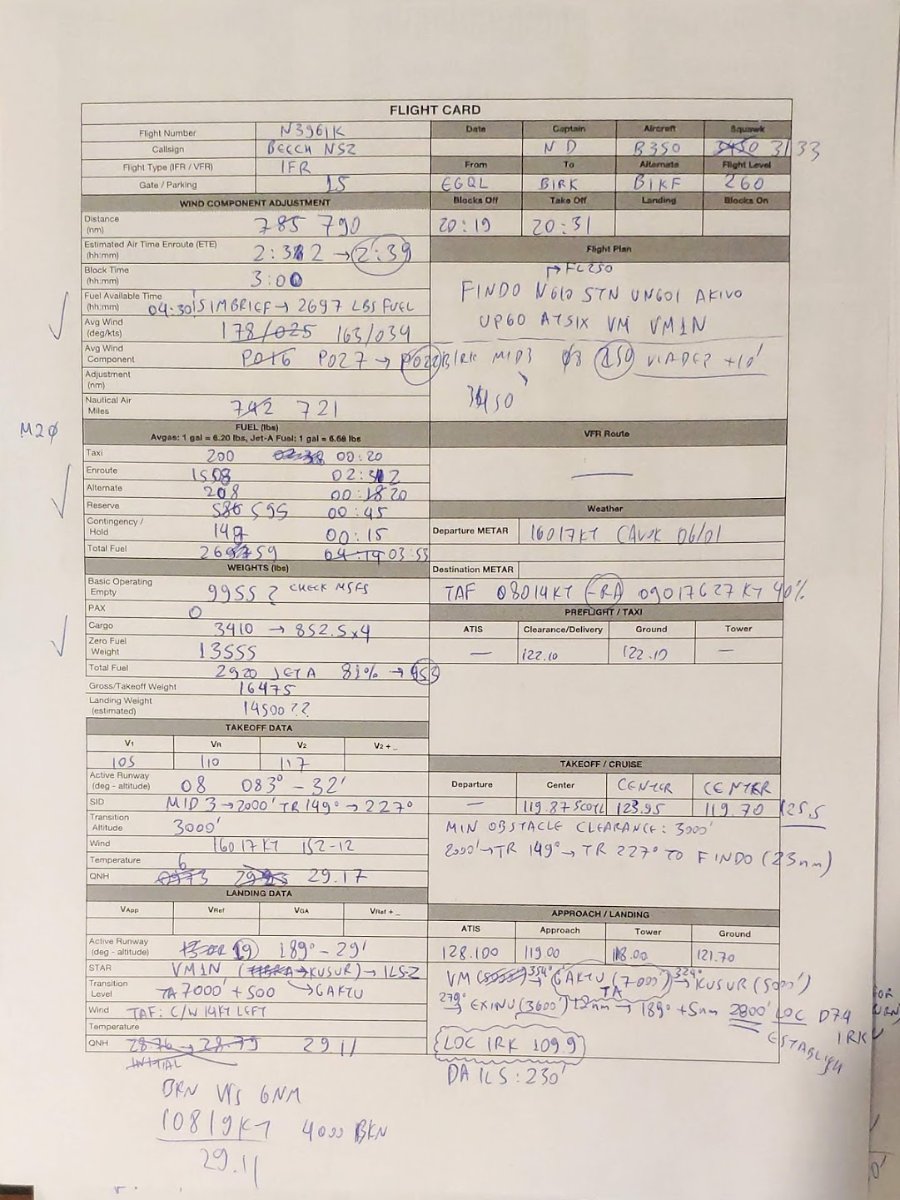 FLIGHT CARD
Flight Number N3961K
Callsign BEECH NSZ
Flight Type (IFR / VFR) IFR
Gate / Parking 15
Date Captain Aircraft Squawk
ND B350 3450 3133
From To Alternate Flight Level
EGQL BIRK BIKF 260
Blocks Off Take Off Landing Blocks On
20:19 20:31
WIND COMPONENT ADJUSTMENT
Distance (nm) 785 790
Estimated Air Time Enroute (ETE) (hh:mm) → 2:39
Block Time (hh:mm) 3:00
Fuel Available Time (hh:mm) 04:30 SIMBRIEF → 2697 LBS FUEL
Avg Wind (deg/kts) 178/025 163/034
Avg Wind Component P016 P027 → P022
Adjustment (nm)
Nautical Air Miles 742 721
Flight Plan
FL250
FINDO N610 STN UN601 AKIVO
UP60 ATSIX VM VM1N
BIRK MID3 159 +10'
M20
FUEL (lbs)
Avgas: 1 gal = 6.20 lbs, Jet-A Fuel: 1 gal = 6.68 lbs
Taxi 200 00:20
Enroute 1508
Alternate 208 00:18 20
Reserve 586 595 00:45
Contingency / Hold 00:15
Total Fuel 03:53
VFR Route
Weather
Departure METAR 16017KT CAVOK 06/01
Destination METAR
TAF 08014KT -RA 09017G27KT 40%
WEIGHTS (lbs)
Basic Operating Empty 9955 ? CHECK MSFS
PAX 0
Cargo 3410 → 852.5x4
Zero Fuel Weight 13555
Total Fuel 2920 JET A 81% →
Gross/Takeoff Weight 16475
Landing Weight (estimated) 14500??
PREFLIGHT / TAXI
ATIS Clearance/Delivery Ground Tower
— 122.10 122.10 —
TAKEOFF DATA
V1 VR V2 V2 + _
105 110 117
Active Runway (deg - altitude) 08 083° - 32'
SID MID3 → 2000' TR 149° → 227°
Transition Altitude 3000'
Wind 16017KT 152-12
Temperature 6
QNH 29.17
TAKEOFF / CRUISE
Departure Center CENTER CENTER
— 119.87 SCOTL 123.95 119.70 125.5
MIN OBSTACLE CLEARANCE: 3000'
2000' → TR 149° → TR 227° TO FINDO (23nm)
LANDING DATA
VApp VRef VGA VRef + _
Active Runway (deg - altitude) 19 189° - 29'
STAR VM1N ( → KUSUR) → ILS-Z
→ GAKTU
Transition Level TA 7000' + 500
Wind TAF: C/W 14KT LEFT
Temperature
QNH 28.76 → 28.79 29.11
INITIAL
APPROACH / LANDING
ATIS Approach Tower Ground
128.100 119.00 118.00 121.70
VM 354° GAKTU (7000') 324° → KUSUR (5000')
TA
279° → EXINU (3600') 189° +5nm 2800' LOC D7.4
IRK
ESTABLISH
LOC IRK 109.9
DA ILS: 230'
BKN VIS 6NM
10819KT 4000 BKN
29.11